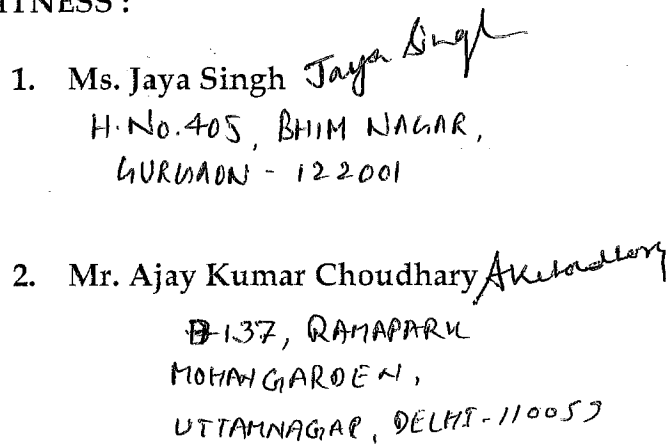 WITNESS :
1. Ms. Jaya Singh Jaya Singh
H.No.405, BHIM NAGAR,
GURGAON - 122001
2. Mr. Ajay Kumar Choudhary AKChoudhary
B-137, RAMAPARK
MOHANGARDEN,
UTTAMNAGAR, DELHI-110059